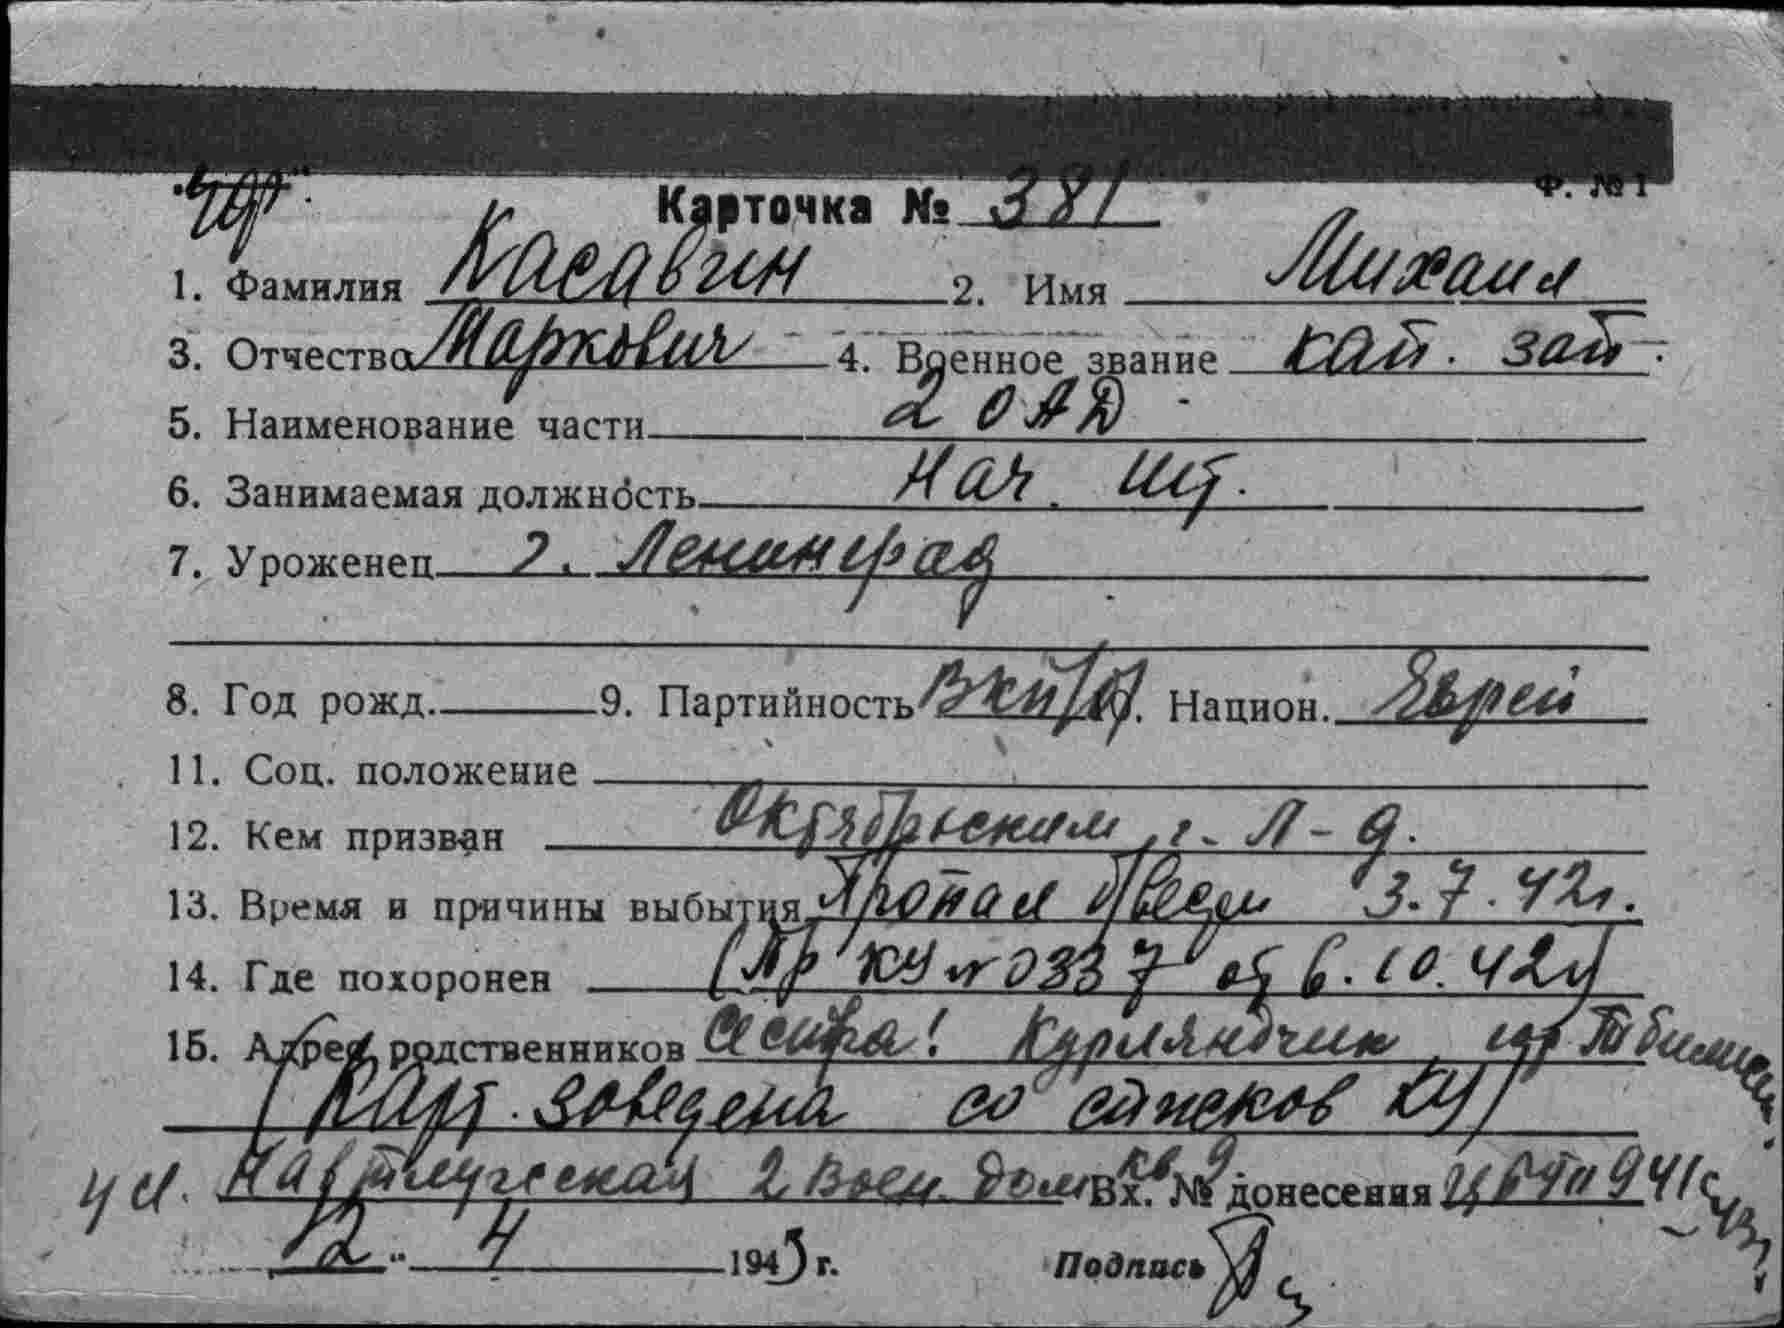 Ф. № 1
Карточка № 381
1. Фамилия Касавин 2. Имя Михаил
3. Отчество Маркович 4. Военное звание кап. зап.
5. Наименование части 2 ОАД
6. Занимаемая должность Нач. шт.
7. Уроженец г. Ленинград
8. Год рожд. 9. Партийность ВКП/б/. Национ. Еврей
11. Соц. положение
12. Кем призван Октябрьским г. Л-д.
13. Время и причины выбытия Пропал б/вести 3.7.42г.
14. Где похоронен (Пр КУ № 0337 от 6.10.42г)
15. Адрес родственников Сестра! Курляндчик гор Тбилиси
(Карт. заведена со списков КУ)
ул. Навтлугская 2 Воен. дом кв 9 Вх. № донесения
12 " 4 1943 г. Подпись